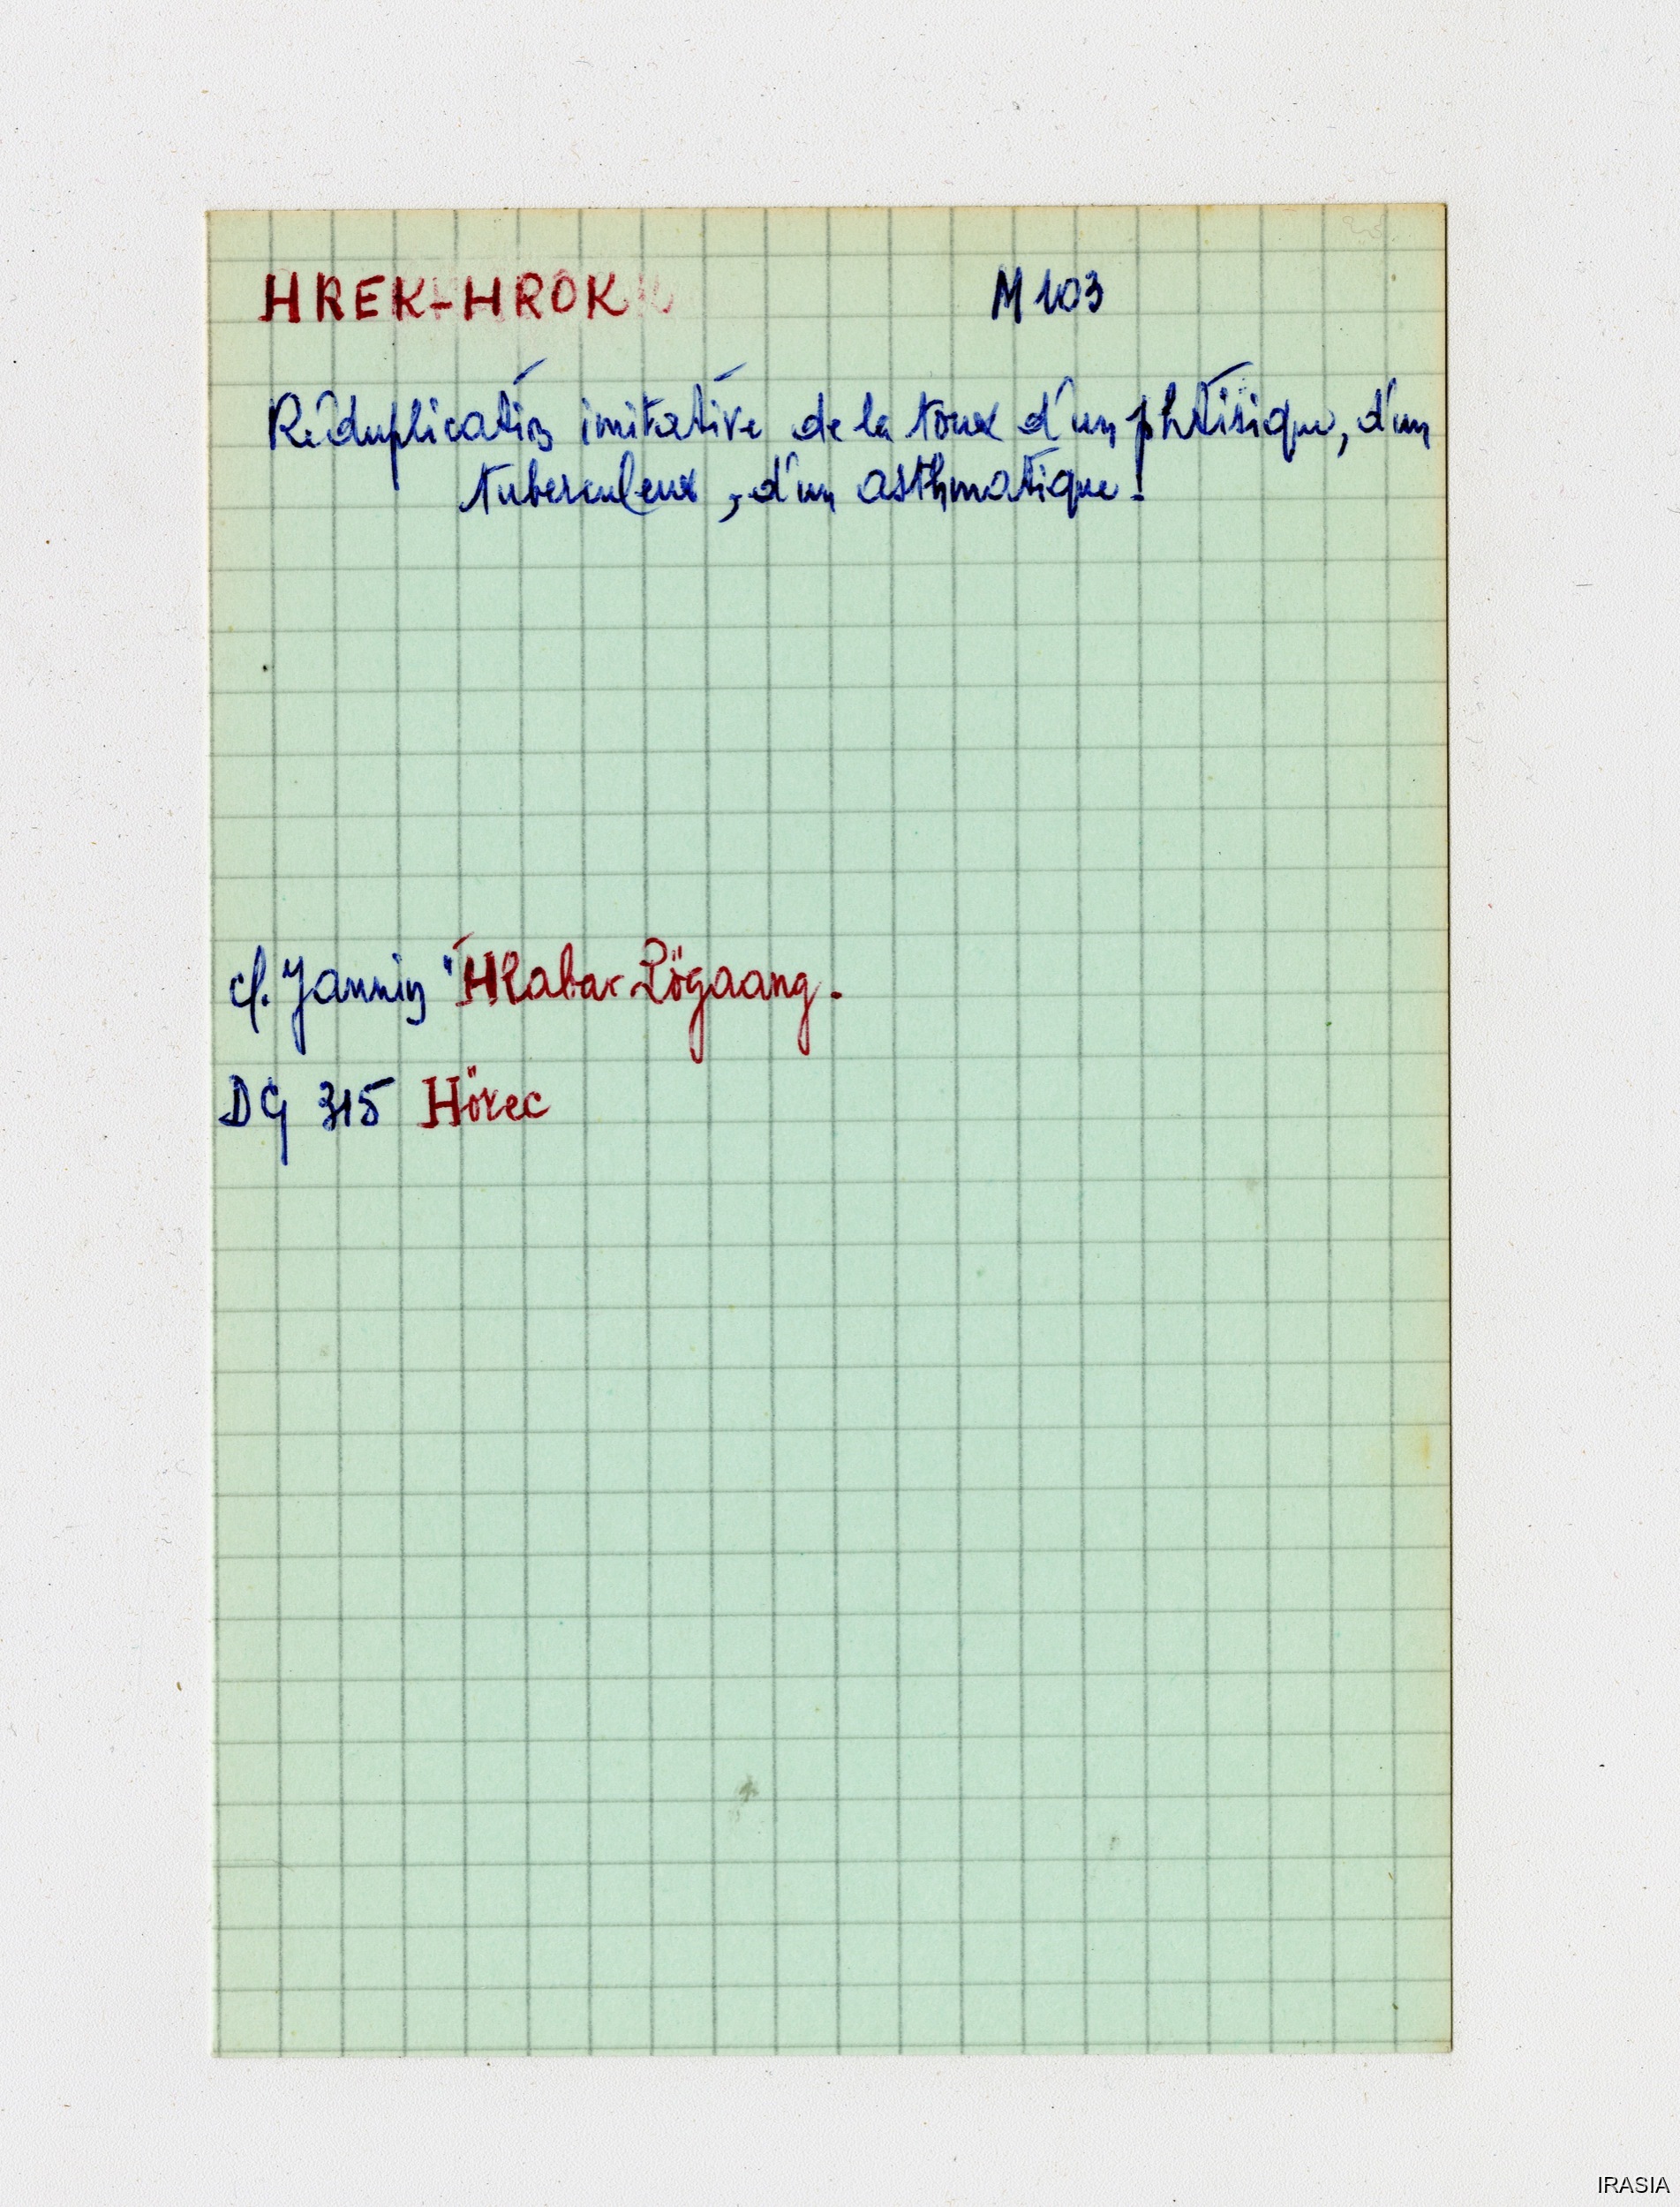 HREK-HROK M 103
Réduplication imitative de la toux d'un phtisique, d'un
tuberculeux, d'un asthmatique!
cf. Jannin "Hlabar Lögaang.
DG 315 Hörec
IRASIA